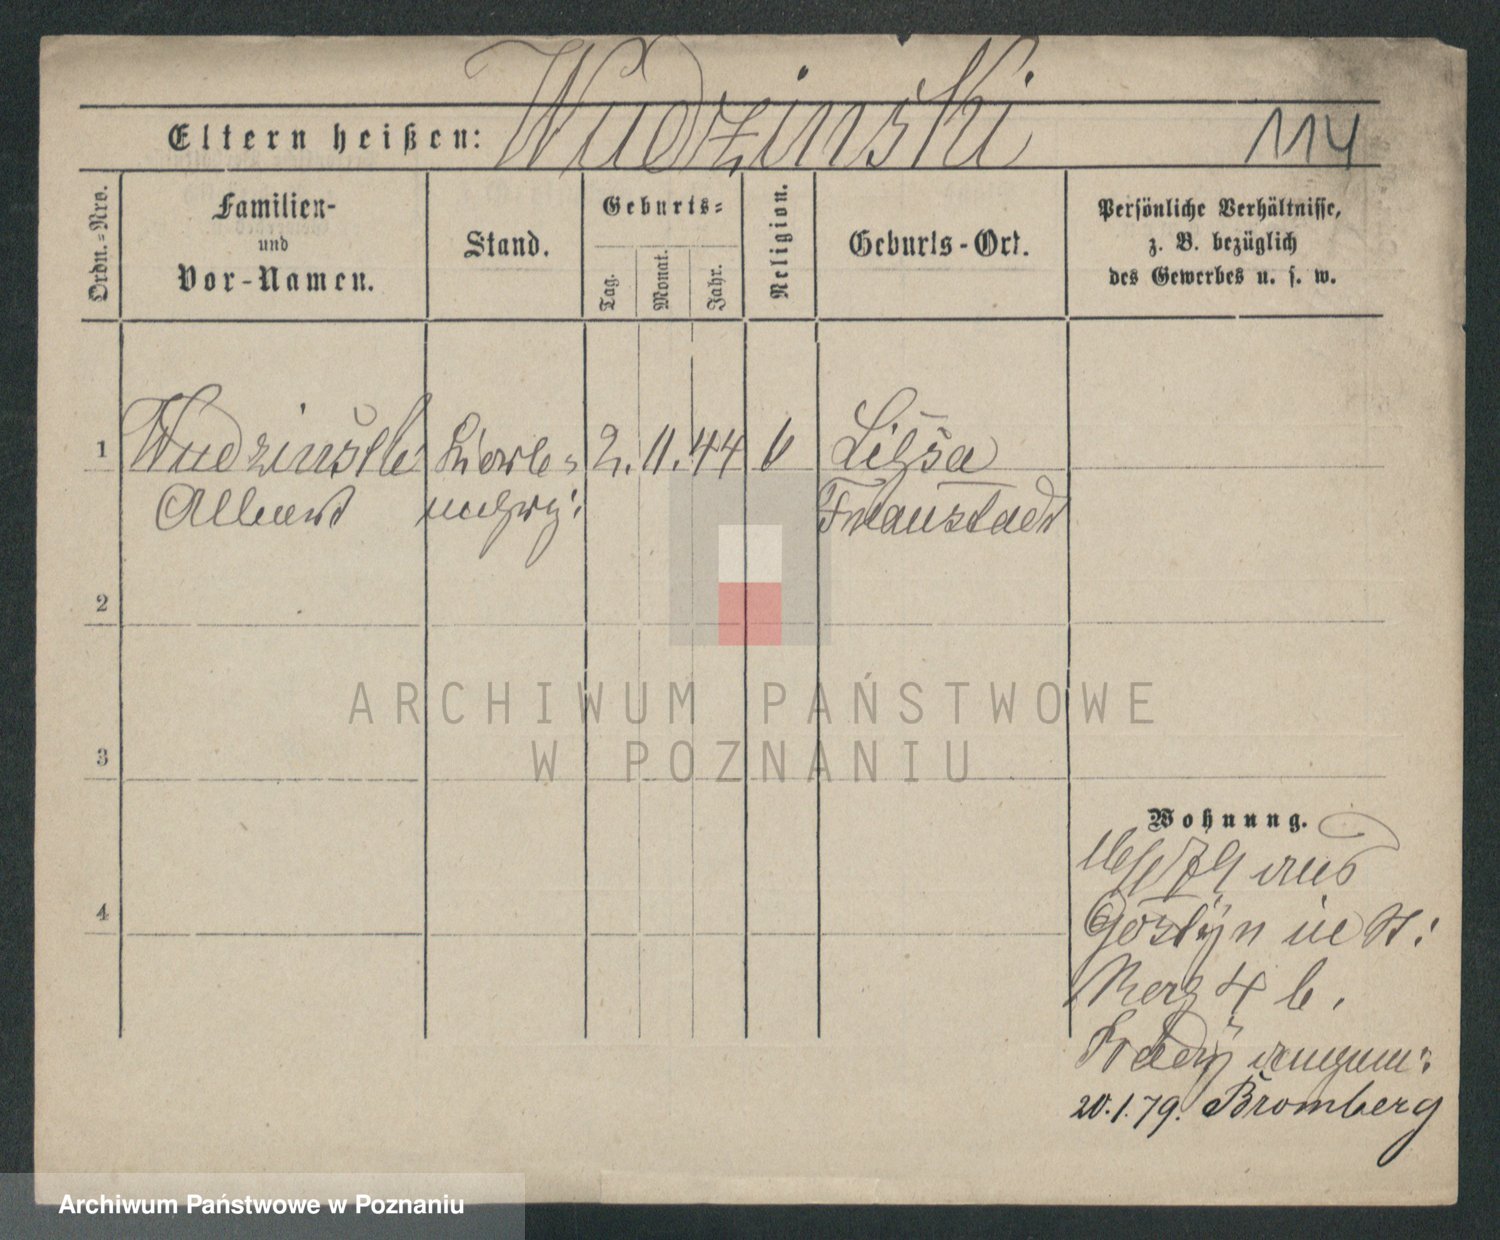 Wudzinski
Eltern heißen:
114
Ordn.-Nro.
Familien-
und
Vor-Namen.
Stand.
Geburts-
Tag.
Monat.
Jahr.
Religion.
Geburts-Ort.
Persönliche Verhältnisse,
z. B. bezüglich
des Gewerbes u. s. w.
1
Wudzinski
2. 11. 44
Albert
Fraustadt
2
ARCHIWUM PAŃSTWOWE
W POZNANIU
3
Wohnung.
4
aus
Gostyn in St.
20.1.79. Bromberg
Archiwum Państwowe w Poznaniu